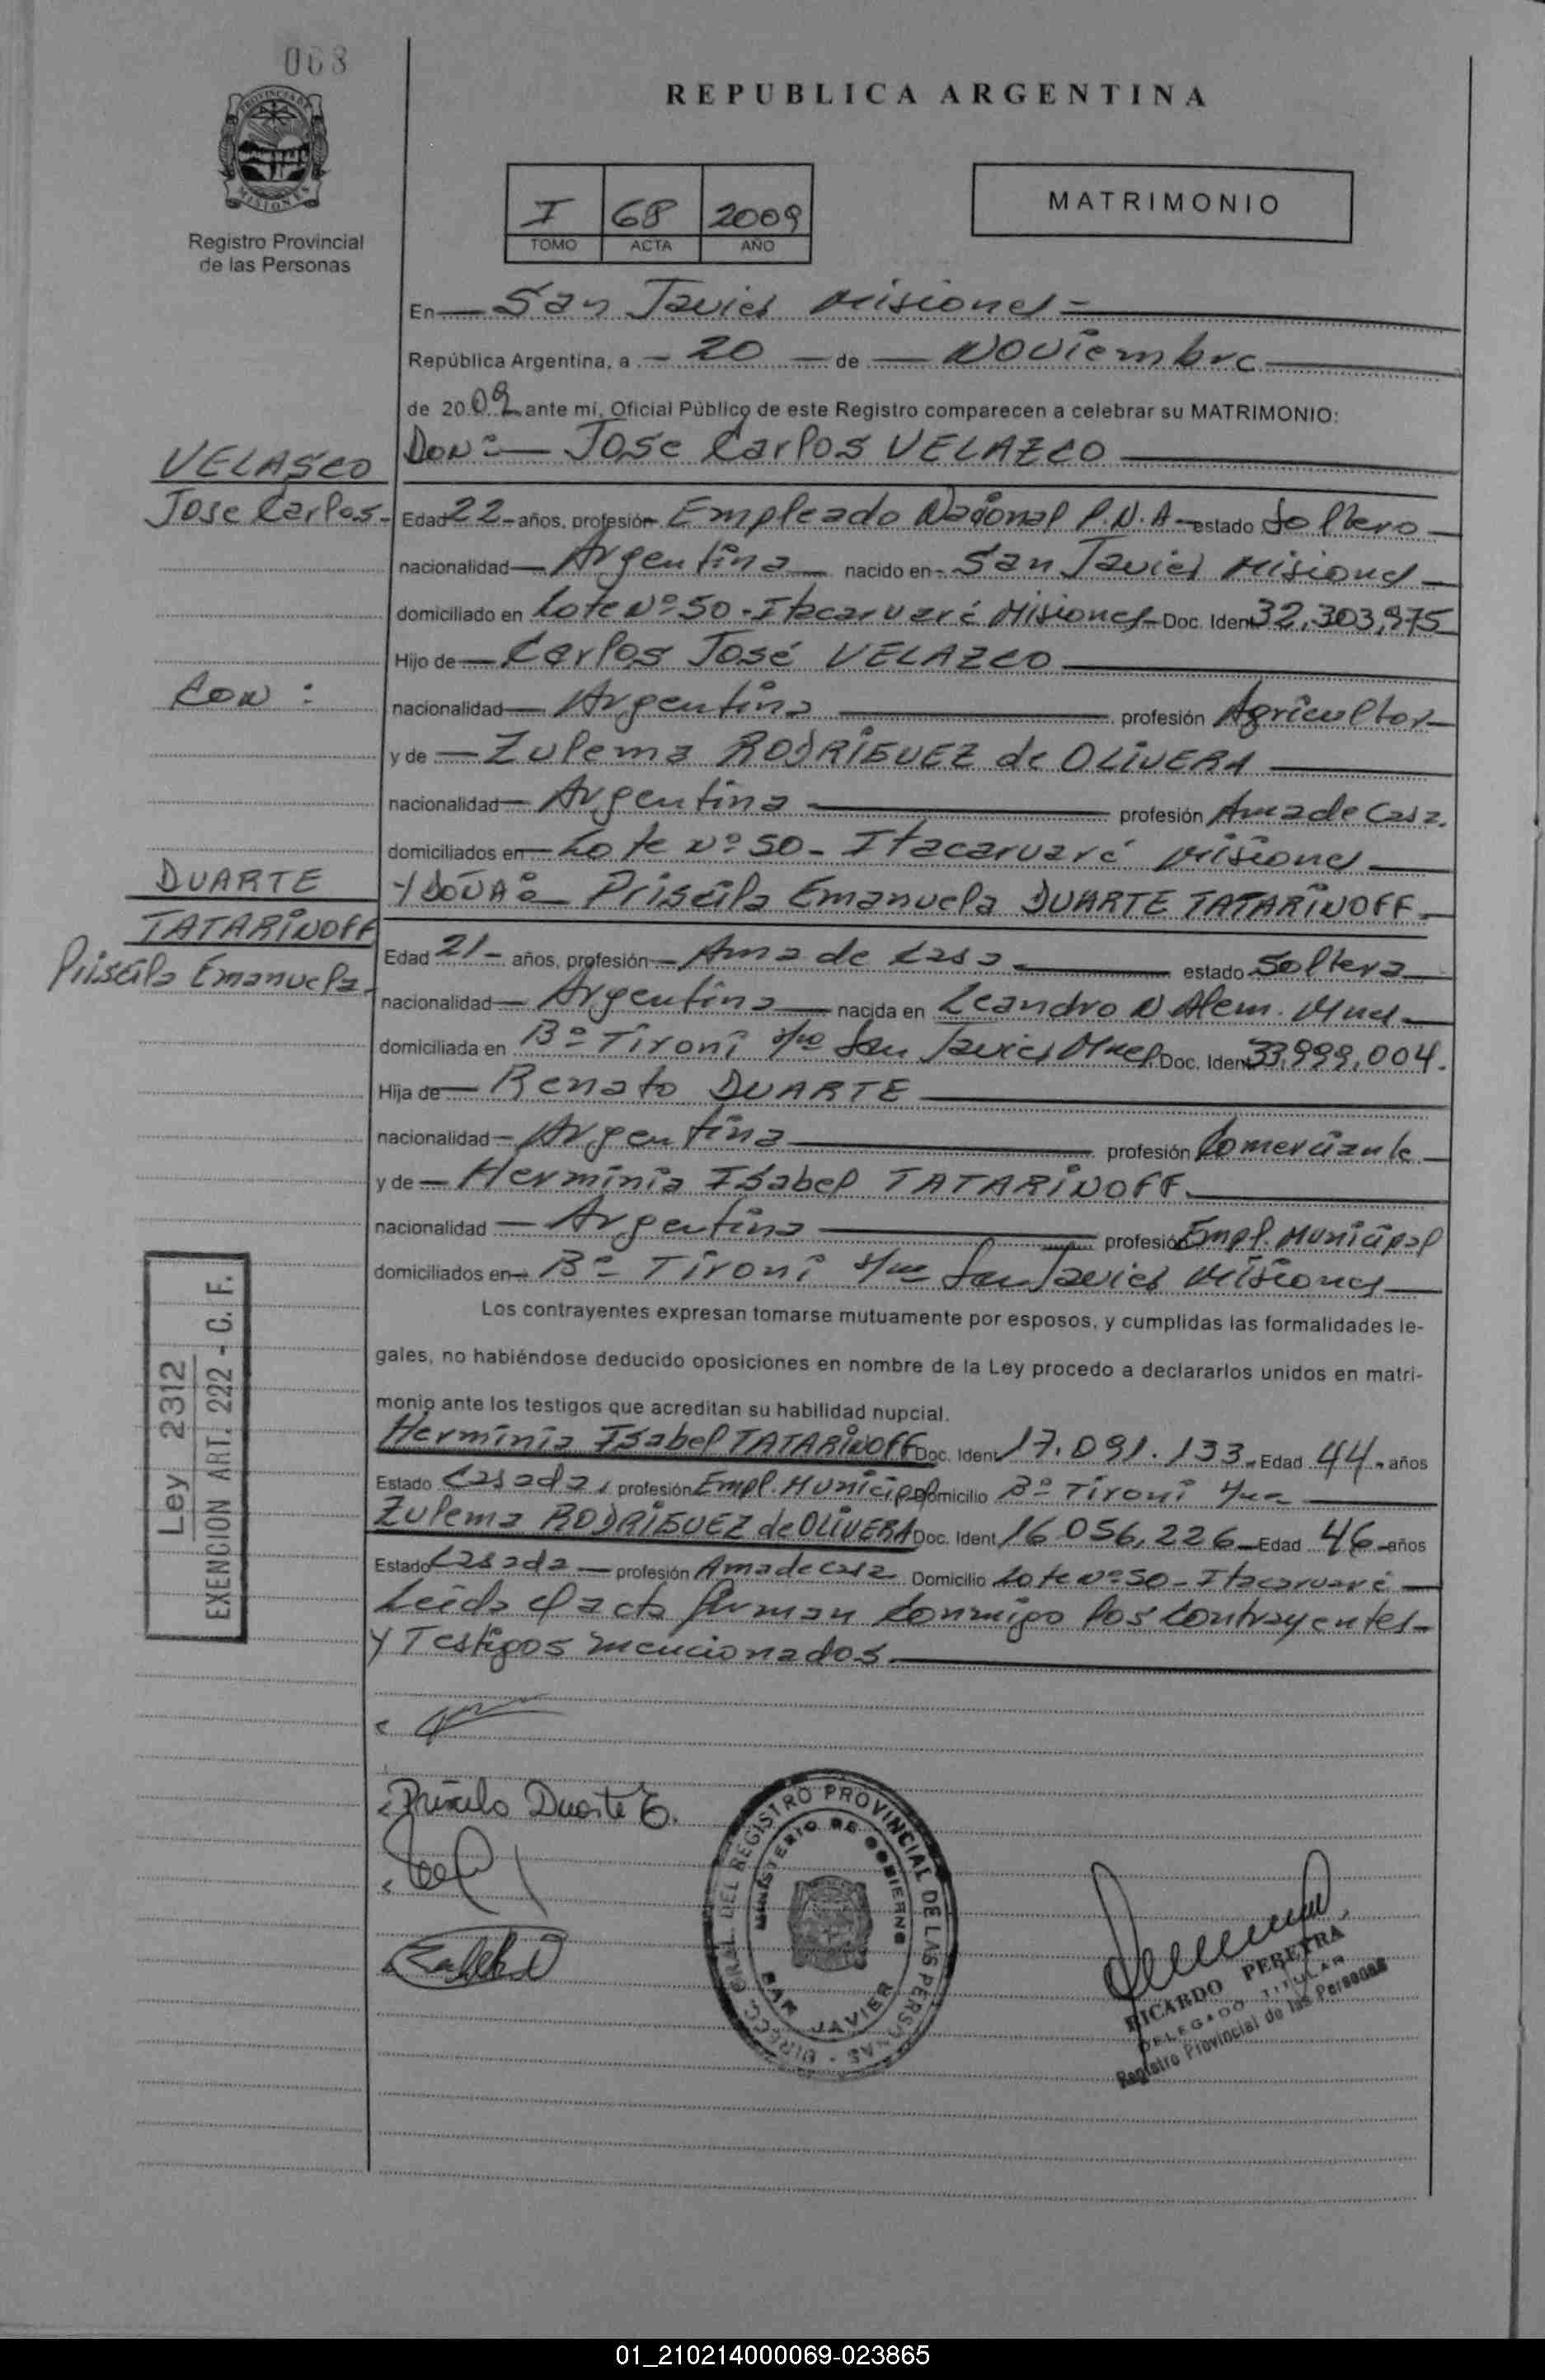 068
PROVINCIA DE
MISIONES
Registro Provincial
de las Personas
REPUBLICA ARGENTINA
I 68 2009
TOMO ACTA AÑO
MATRIMONIO
En San Javier Misiones
República Argentina, a 20 de Noviembre
de 2009 ante mí, Oficial Público de este Registro comparecen a celebrar su MATRIMONIO:
VELASCO
Jose Carlos
DON: Jose Carlos VELAZCO
Edad 22 años, profesión Empleado Nacional P.N.A estado Soltero
nacionalidad Argentina nacido en San Javier Misiones
domiciliado en Lote Nº 50 - Itacaruaré Misiones Doc. Ident 32.303.975
Hijo de Carlos José VELAZCO
CON :
nacionalidad Argentina profesión Agricultor
y de Zulema RODRIGUEZ de OLIVERA
nacionalidad Argentina profesión Ama de Casa.
domiciliados en Lote Nº 50 - Itacaruaré Misiones
DUARTE
TATARINOFF
Priscila Emanuela
Y DOÑA: Priscila Emanuela DUARTE TATARINOFF
Edad 21 años, profesión Ama de Casa estado Soltera
nacionalidad Argentina nacida en Leandro N Alem. Mnes
domiciliada en Bº Tironi s/nº San Javier Mnes. Doc. Ident 33.999.004.
Hija de Renato DUARTE
nacionalidad Argentina profesión Comerciante
y de Herminia Isabel TATARINOFF
nacionalidad Argentina profesión Empl. Municipal
domiciliados en Bº Tironi s/nº San Javier Misiones
Los contrayentes expresan tomarse mutuamente por esposos, y cumplidas las formalidades le-
gales, no habiéndose deducido oposiciones en nombre de la Ley procedo a declararlos unidos en matri-
monio ante los testigos que acreditan su habilidad nupcial.
Herminia Isabel TATARINOFF Doc. Ident 17.091.133 Edad 44 años
Estado Casada, profesión Empl. Municipal Domicilio Bº Tironi s/nº
Zulema RODRIGUEZ de OLIVERA Doc. Ident 16.056.226 Edad 46 años
Estado Casada profesión Ama de casa Domicilio Lote Nº 50 - Itacaruaré
Leida el acta firman conmigo los contrayentes
y Testigos mencionados.
Ley 2312
EXENCION ART. 222 - C. F.
Priscila Duarte E.
DIRECC. GRAL. DEL REGISTRO PROVINCIAL DE LAS PERSONAS
MINISTERIO DE GOBIERNO
SAN JAVIER
RICARDO PEREYRA
DELEGADO TITULAR
Registro Provincial de las Personas
01_210214000069-023865